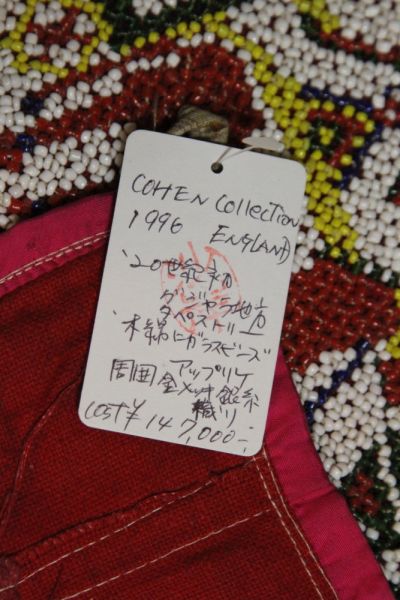 COHEN Collection
1996 ENGLAND
'20世紀初
グジャラ地方
タペストリー
'木綿にガラスビーズ
アップリケ
周囲金メッキ銀糸
織り
COST ¥147,000-